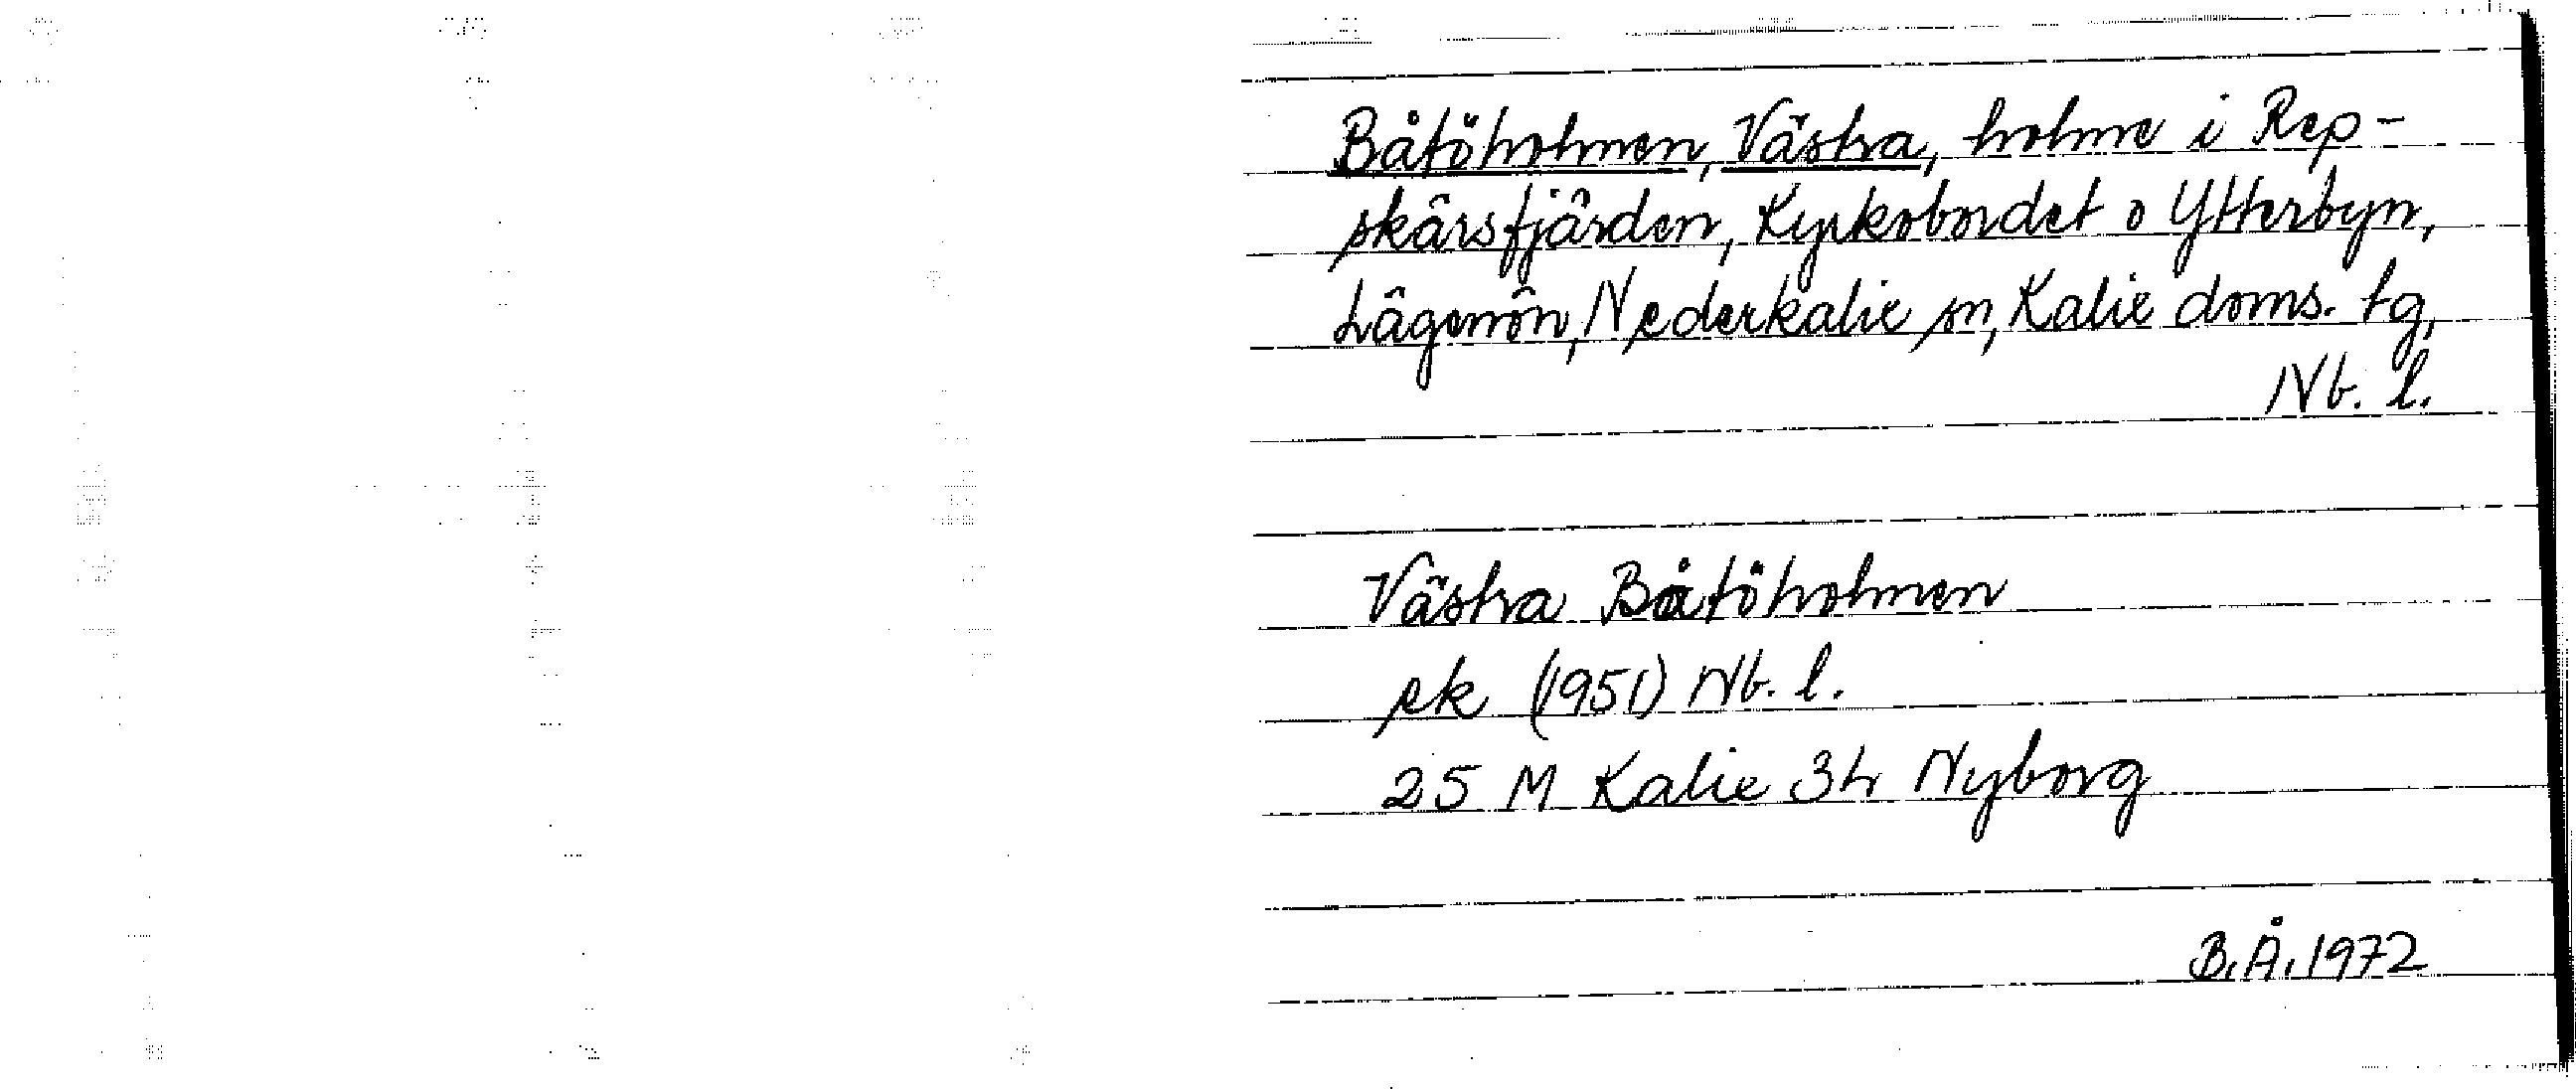 Båtöholmen, Västra, holme i Rep-
skärsfjärden, Kyrkobordet o Ytterbyn,
Lågmön, Nederkalix sn, Kalix doms. tg,
Nb. l.
Västra Båtöholmen
ek (1951) Nb. l.
25 M Kalix 3h Nyborg
B.Å. 1972